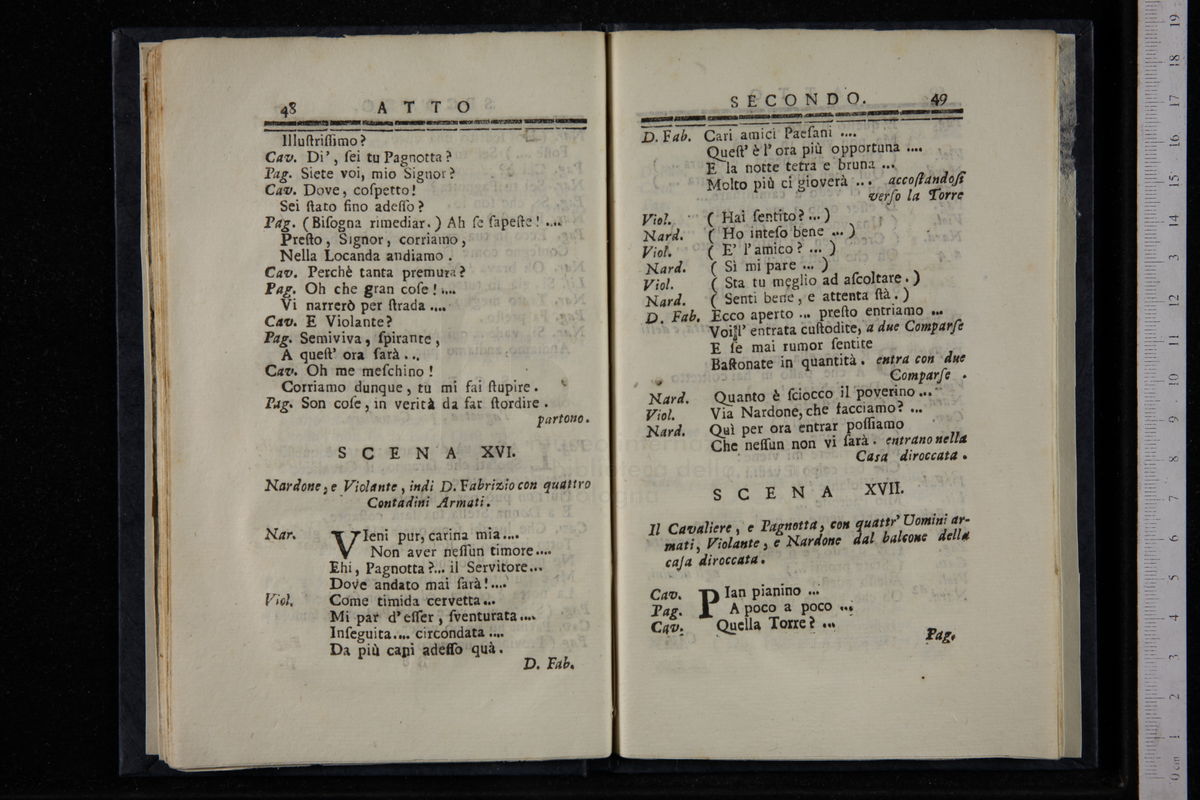 48 ATTO
Illuſtriſſimo?
Cav. Di', ſei tu Pagnotta?
Pag. Siete voi, mio Signor?
Cav. Dove, coſpetto!
Sei ſtato fino adeſſo?
Pag. (Biſogna rimediar.) Ah ſe ſapeſte! ....
Preſto, Signor, corriamo,
Nella Locanda andiamo.
Cav. Perchè tanta premura?
Pag. Oh che gran coſe! ....
Vi narrerò per ſtrada ....
Cav. E Violante?
Pag. Semiviva, ſpirante,
A queſt' ora ſarà ...
Cav. Oh me meſchino!
Corriamo dunque, tu mi fai ſtupire.
Pag. Son coſe, in verità da far ſtordire.
partono.
SCENA XVI.
Nardone, e Violante, indi D. Fabrizio con quattro
Contadini Armati.
Nar. VIeni pur, carina mia....
Non aver neſſun timore....
Ehi, Pagnotta?... il Servitore...
Dove andato mai ſarà!....
Viol. Come timida cervetta...
Mi par d'eſſer, ſventurata....
Inſeguita.... circondata ....
Da più cani adeſſo quà.
D. Fab.
SECONDO. 49
D. Fab. Cari amici Paeſani ....
Queſt' è l' ora più opportuna ....
E la notte tetra e bruna ...
Molto più ci gioverà ... accoſtandoſi
verſo la Torre
Viol. ( Hai ſentito? ... )
Nard. ( Ho inteſo bene ... )
Viol. ( E' l'amico? ... )
Nard. ( Sì mi pare ... )
Viol. ( Sta tu meglio ad aſcoltare. )
Nard. ( Senti bene, e attenta ſtà. )
D. Fab. Ecco aperto ... preſto entriamo ...
Voi l' entrata cuſtodite, a due Comparſe
E ſe mai rumor ſentite
Baſtonate in quantità. entra con due
Comparſe.
Nard. Quanto è ſciocco il poverino ...
Viol. Via Nardone, che facciamo? ...
Nard. Quì per ora entrar poſſiamo
Che neſſun non vi ſarà. entrano nella
Caſa diroccata.
SCENA XVII.
Il Cavaliere, e Pagnotta, con quattr' Uomini ar-
mati, Violante, e Nardone dal balcone della
caſa diroccata.
Cav. PIan pianino ...
Pag. A poco a poco ...
Cav. Quella Torre? ...
Pag.